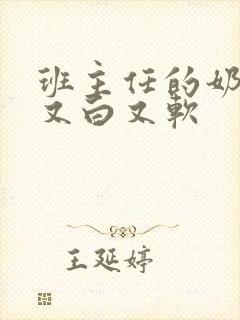 班主任的奶
又白又软
王延婷